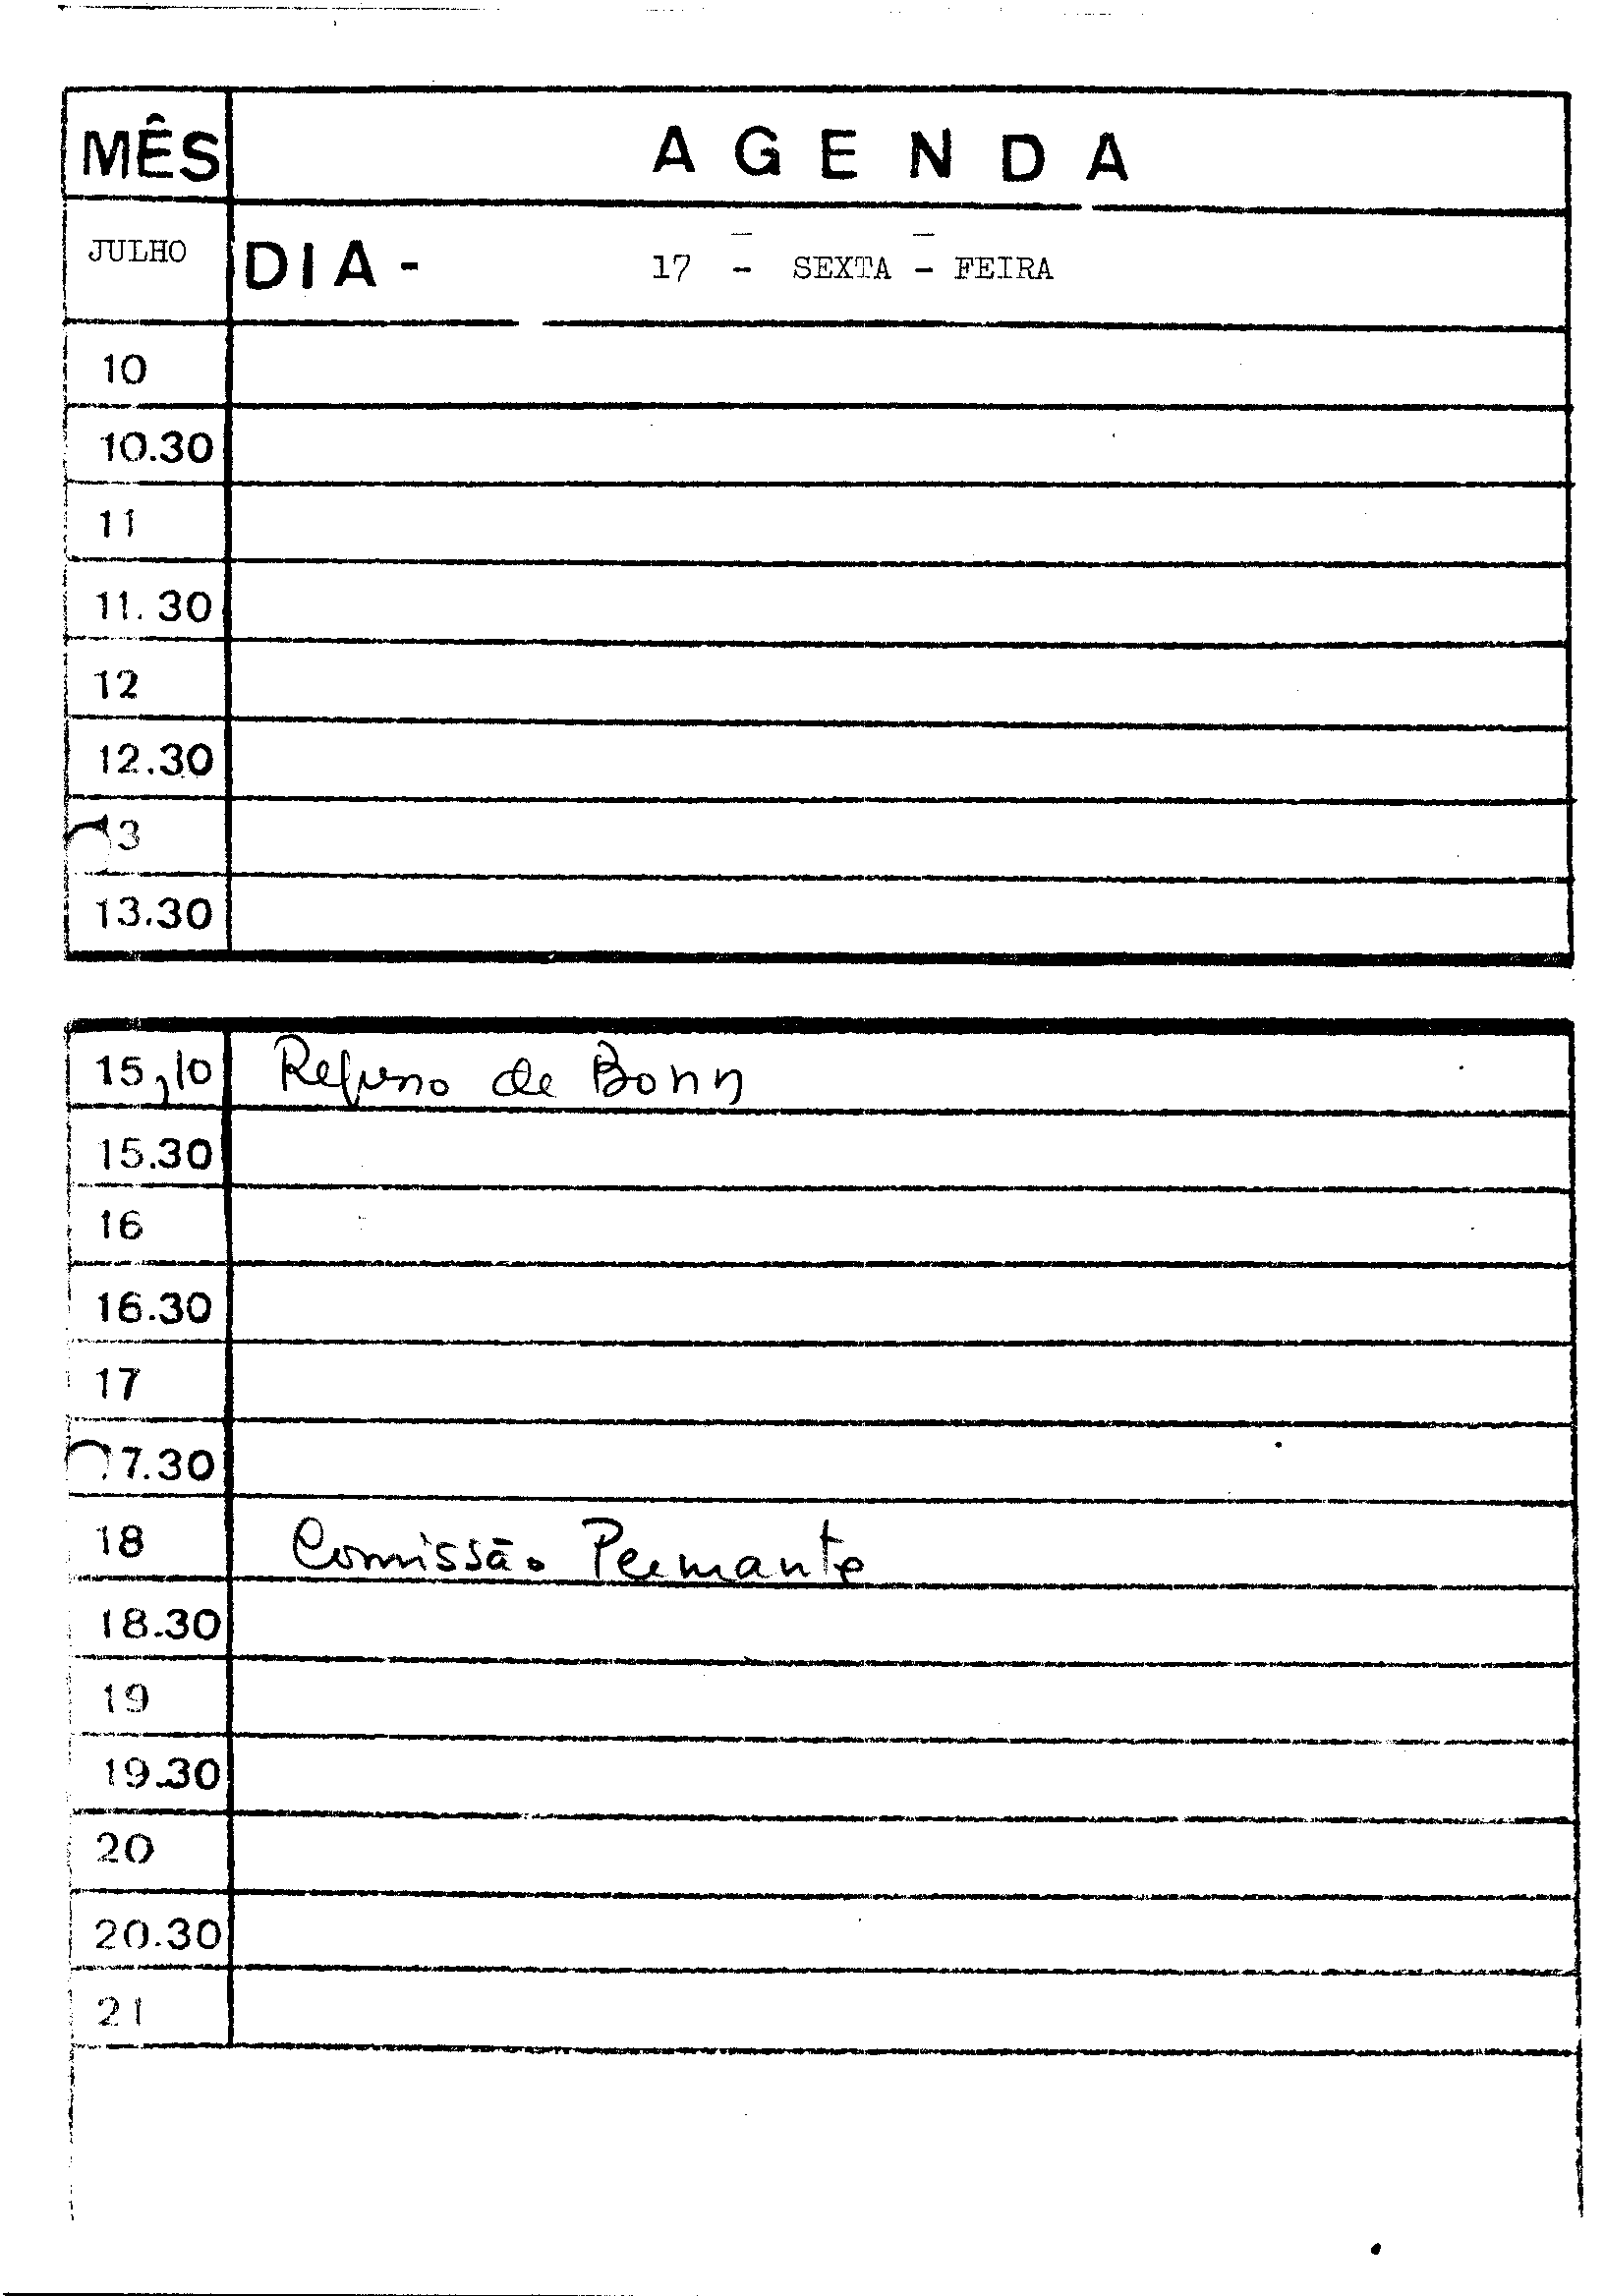 MÊS AGENDA
JULHO DIA - 17 - SEXTA - FEIRA
10
10.30
11
11.30
12
12.30
13
13.30
15,10 Regresso de Bonn
15.30
16
16.30
17
17.30
18 Comissão Permante
18.30
19
19.30
20
20.30
21